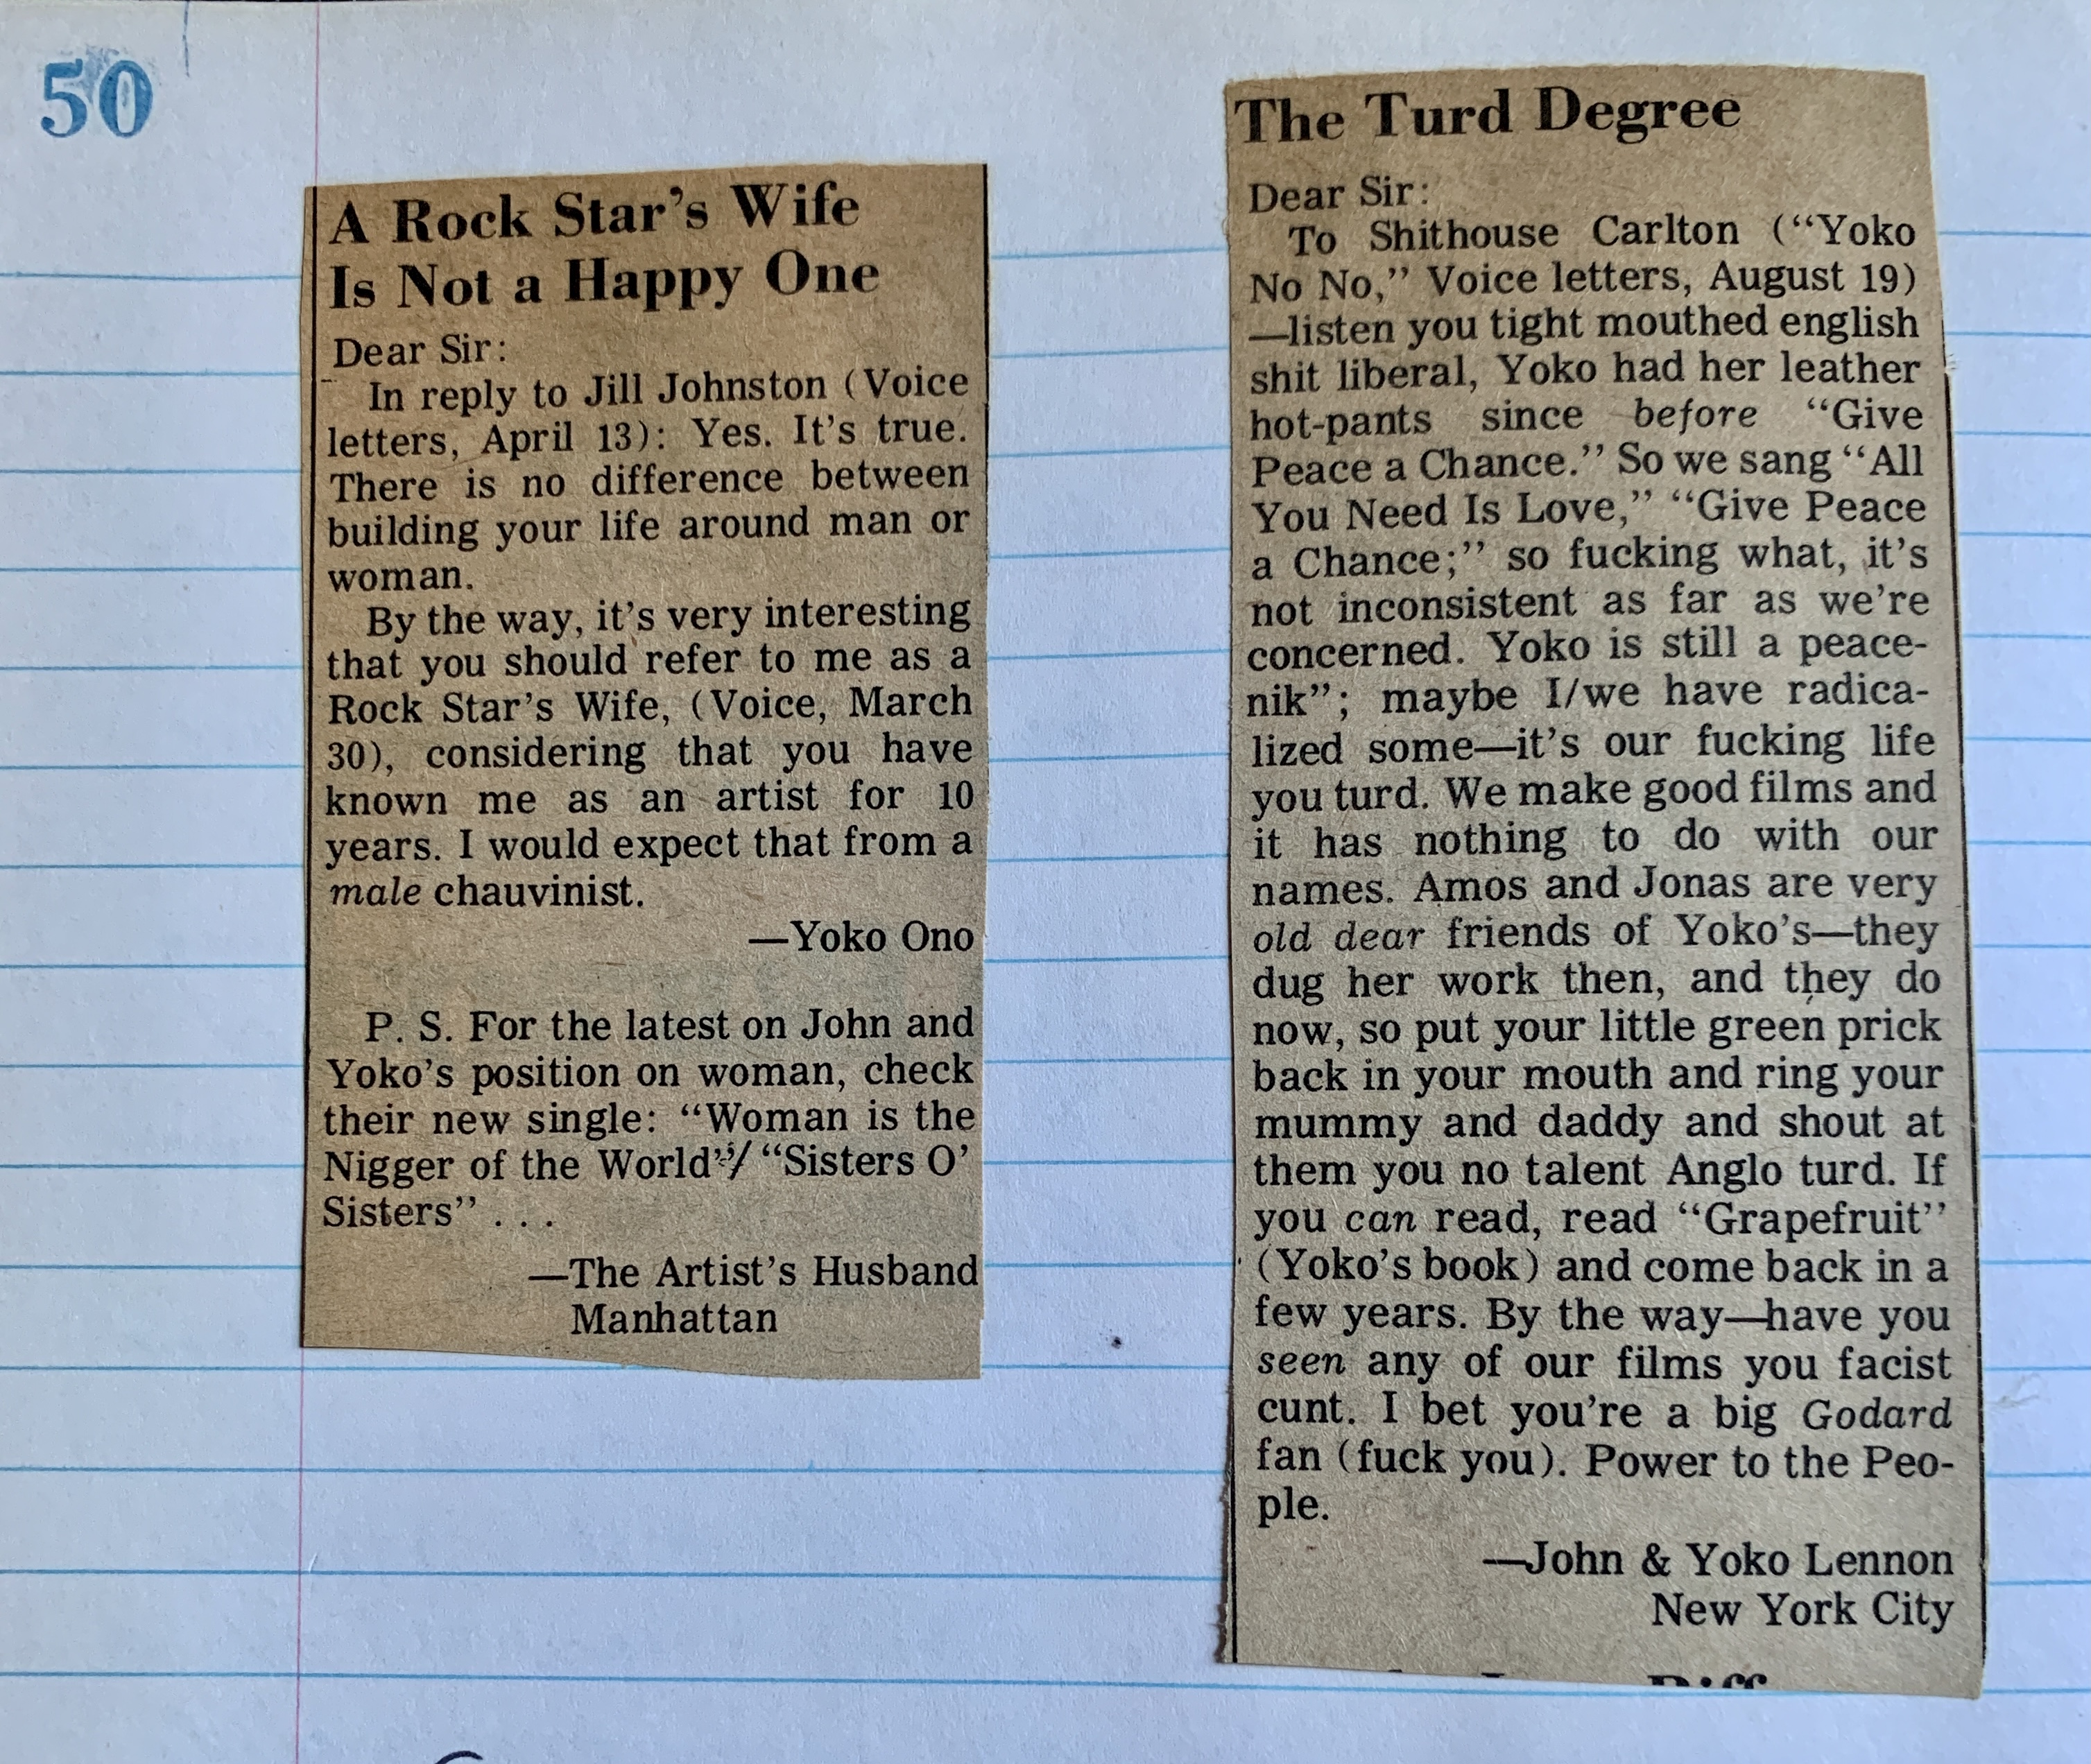 50
A Rock Star's Wife
Is Not a Happy One
Dear Sir:
In reply to Jill Johnston (Voice
letters, April 13): Yes. It's true.
There is no difference between
building your life around man or
woman.
By the way, it's very interesting
that you should refer to me as a
Rock Star's Wife, (Voice, March
30), considering that you have
known me as an artist for 10
years. I would expect that from a
male chauvinist.
—Yoko Ono
P. S. For the latest on John and
Yoko's position on woman, check
their new single: “Woman is the
Nigger of the World”/ “Sisters O'
Sisters” . . .
—The Artist's Husband
Manhattan
The Turd Degree
Dear Sir:
To Shithouse Carlton (“Yoko
No No,” Voice letters, August 19)
—listen you tight mouthed english
shit liberal, Yoko had her leather
hot-pants since before “Give
Peace a Chance.” So we sang “All
You Need Is Love,” “Give Peace
a Chance;” so fucking what, it's
not inconsistent as far as we're
concerned. Yoko is still a peace-
nik”; maybe I/we have radica-
lized some—it's our fucking life
you turd. We make good films and
it has nothing to do with our
names. Amos and Jonas are very
old dear friends of Yoko's—they
dug her work then, and they do
now, so put your little green prick
back in your mouth and ring your
mummy and daddy and shout at
them you no talent Anglo turd. If
you can read, read “Grapefruit”
(Yoko's book) and come back in a
few years. By the way—have you
seen any of our films you facist
cunt. I bet you're a big Godard
fan (fuck you). Power to the Peo-
ple.
—John & Yoko Lennon
New York City